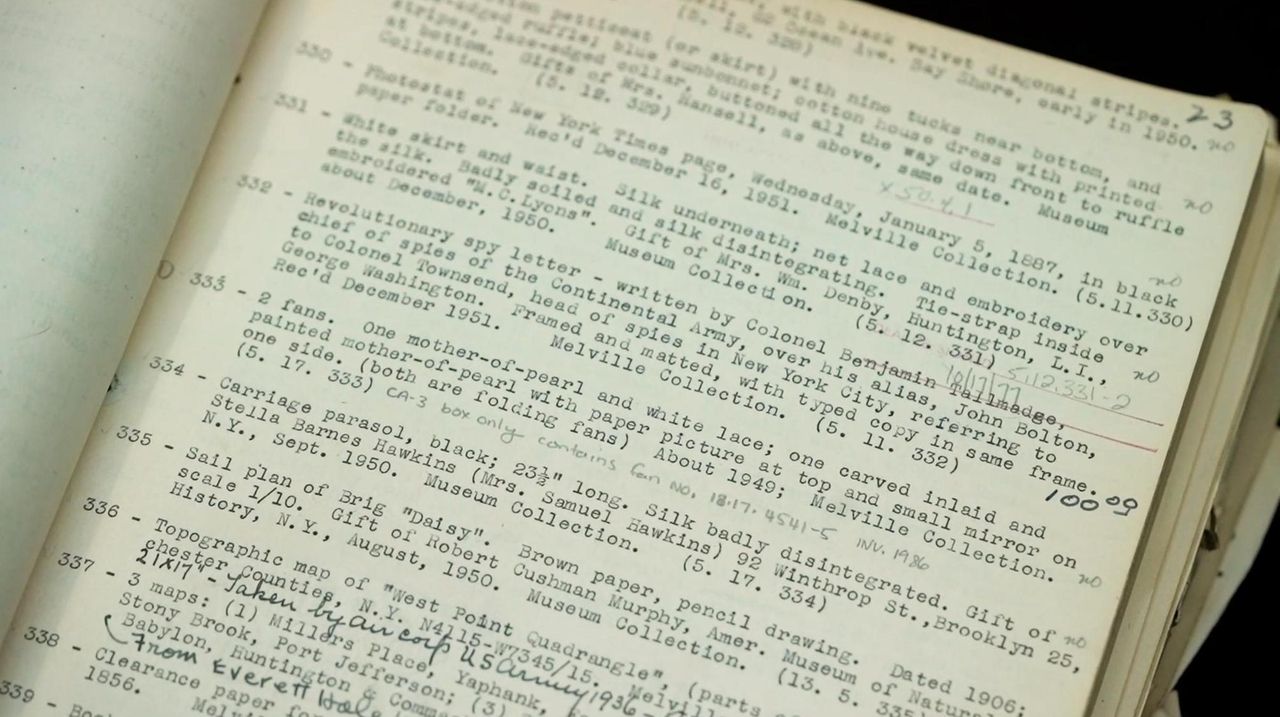 23
with black velvet diagonal stripes.
Ocean Ave. Bay Shore, early in 1950. no
(5. 12. 328)
petticoat (or skirt) with nine tucks near bottom, and
stripes, lace-edged collar, buttoned all the way down front to ruffle
ruffle; blue sunbonnet; cotton house dress with printed no
at bottom. Gifts of Mrs. Hansell, as above, same date. Museum
Collection. (5. 12. 329)
330 - Photostat of New York Times page, Wednesday, January 5, 1887, in black no
paper folder. Rec'd December 16, 1951. Melville Collection. (5.11.330)
x 50.41
331 - White skirt and waist. Silk underneath; net lace and embroidery over
the silk. Badly soiled and silk disintegrating. Tie-strap inside
embroidered "M.C.Lyons". Gift of Mrs. Wm. Denby, Huntington, L.I., no
about December, 1950. Museum Collection. (5. 12. 331)
10/17/77 5.12.331-2
332 - Revolutionary spy letter - written by Colonel Benjamin Tallmadge,
chief of spies of the Continental Army, over his alias, John Bolton,
to Colonel Townsend, head of spies in New York City, referring to
George Washington. Framed and matted, with typed copy in same frame.
Rec'd December 1951. Melville Collection. (5. 11. 332) 100 00
333 - 2 fans. One mother-of-pearl and white lace; one carved inlaid and
painted mother-of-pearl with paper picture at top and small mirror on
one side. (both are folding fans) About 1949; Melville Collection. no
(5. 17. 333) CA-3 box only contains fan NO. 18.17.4541-5 INV. 1986
334 - Carriage parasol, black; 23½" long. Silk badly disintegrated. Gift of no
Stella Barnes Hawkins (Mrs. Samuel Hawkins) 92 Winthrop St.,Brooklyn 25,
N.Y., Sept. 1950. Museum Collection. (5. 17. 334)
335 - Sail plan of Brig "Daisy". Brown paper, pencil drawing. Dated 1906;
scale 1/10. Gift of Robert Cushman Murphy, Amer. Museum of Natural
History, N.Y., August, 1950. Museum Collection. (13. 5. 335)
336 - Topographic map of "West Point Quadrangle", (parts
chester Counties, N.Y. N4115-W7345/15. Melville
21x17" - Taken by air corp US Army 1936
337 - 3 maps: (1) Millers Place, Yaphank,
Stony Brook, Port Jefferson; (3)
Babylon, Huntington & Commack
(From Everett
338 - Clearance paper for
1856.
339